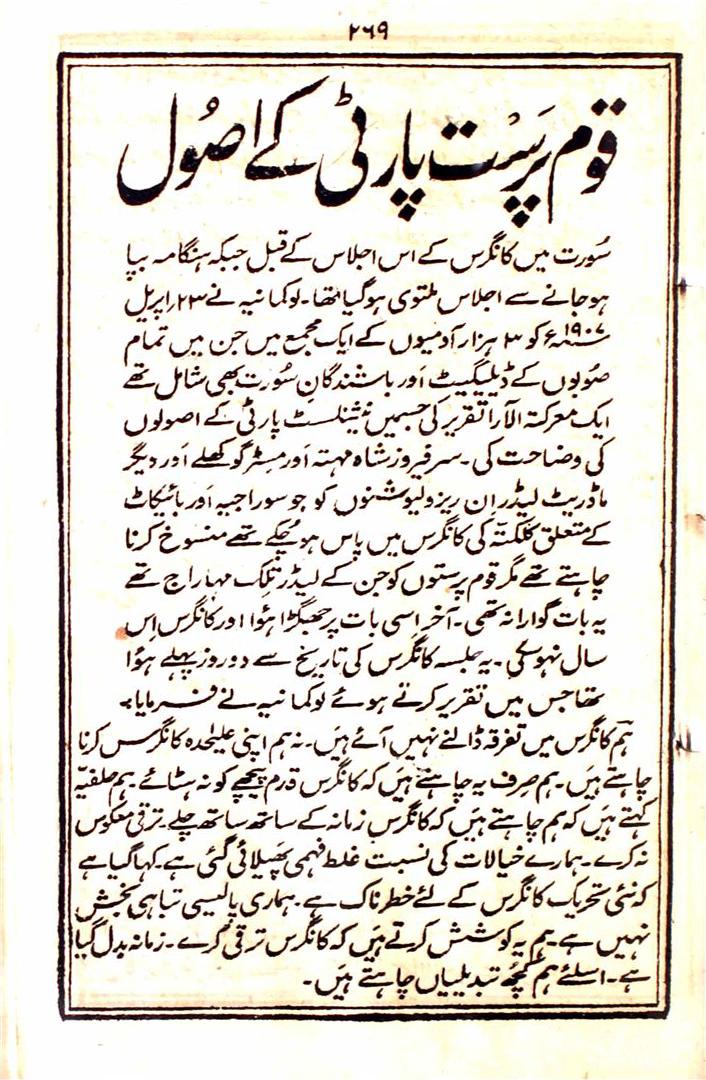 ۲۶۹
قوم پرست پارٹی کے اصول
سُورت میں کانگرس کے اس اجلاس کے قبل جبکہ ہنگامہ بپا
ہوجانے سے اجلاس ملتوی ہوگیا تھا۔ لوکمانیہ نے ۲۳؍اپریل
۱۹۰۷ء کو ۳ ہزار آدمیوں کے ایک مجمع میں جن میں تمام
صُوبوں کے ڈیلیگیٹ اَور باشندگانِ سُورت بھی شامل تھے
ایک معرکتہ الآرا تقریر کی جسمیں نیشنلسٹ پارٹی کے اصولوں
کی وضاحت کی۔ سر فیروز شاہ مہتہ اَور مسٹر گوکھلے اَور دیگر
ماڈریٹ لیڈر اِن ریزولیوشنوں کو جو سوراجیہ اَور بائیکاٹ
کے متعلق کلکتہ کی کانگرس میں پاس ہوچُکے تھے منسوخ کرنا
چاہتے تھے مگر قوم پرستوں کو جن کے لیڈر تلک مہاراج تھے
یہ بات گوارا نہ تھی۔ آخر اِسی بات پر جھگڑا ہُوا اور کانگرس اِس
سال نہوسکی۔ یہ جلسہ کانگرس کی تاریخ سے دو روز پہلے ہُوا
تھا جس میں تقریر کرتے ہوئے لوکمانیہ نے فرمایا:۔
ہم کانگرس میں تفرقہ ڈالنے نہیں آئے ہَیں۔ نہ ہم اپنی علیٰحدہ کانگرس کرنا
چاہتے ہَیں۔ ہم صِرف یہ چاہتے ہَیں کہ کانگرس قدم پیچھے کو نہ ہٹائے۔ ہم حلفیّہ
کہتے ہَیں کہ ہم چاہتے ہَیں کہ کانگرس زمانہ کے ساتھ ساتھ چلے۔ ترقی معکوس
نہ کرے۔ ہمارے خیالات کی نسبت غلط فہمی پھیلائی گئی ہے۔ کہا گیا ہے
کہ نئی تحریک کانگرس کے لئے خطرناک ہے۔ ہماری پالیسی تباہی بخش
نہیں ہے۔ ہم یہ کوشش کرتے ہَیں کہ کانگرس ترقی کرے۔ زمانہ بدل گیا
ہے۔ اسلئے ہم کُچھ تبدیلیاں چاہتے ہَیں۔